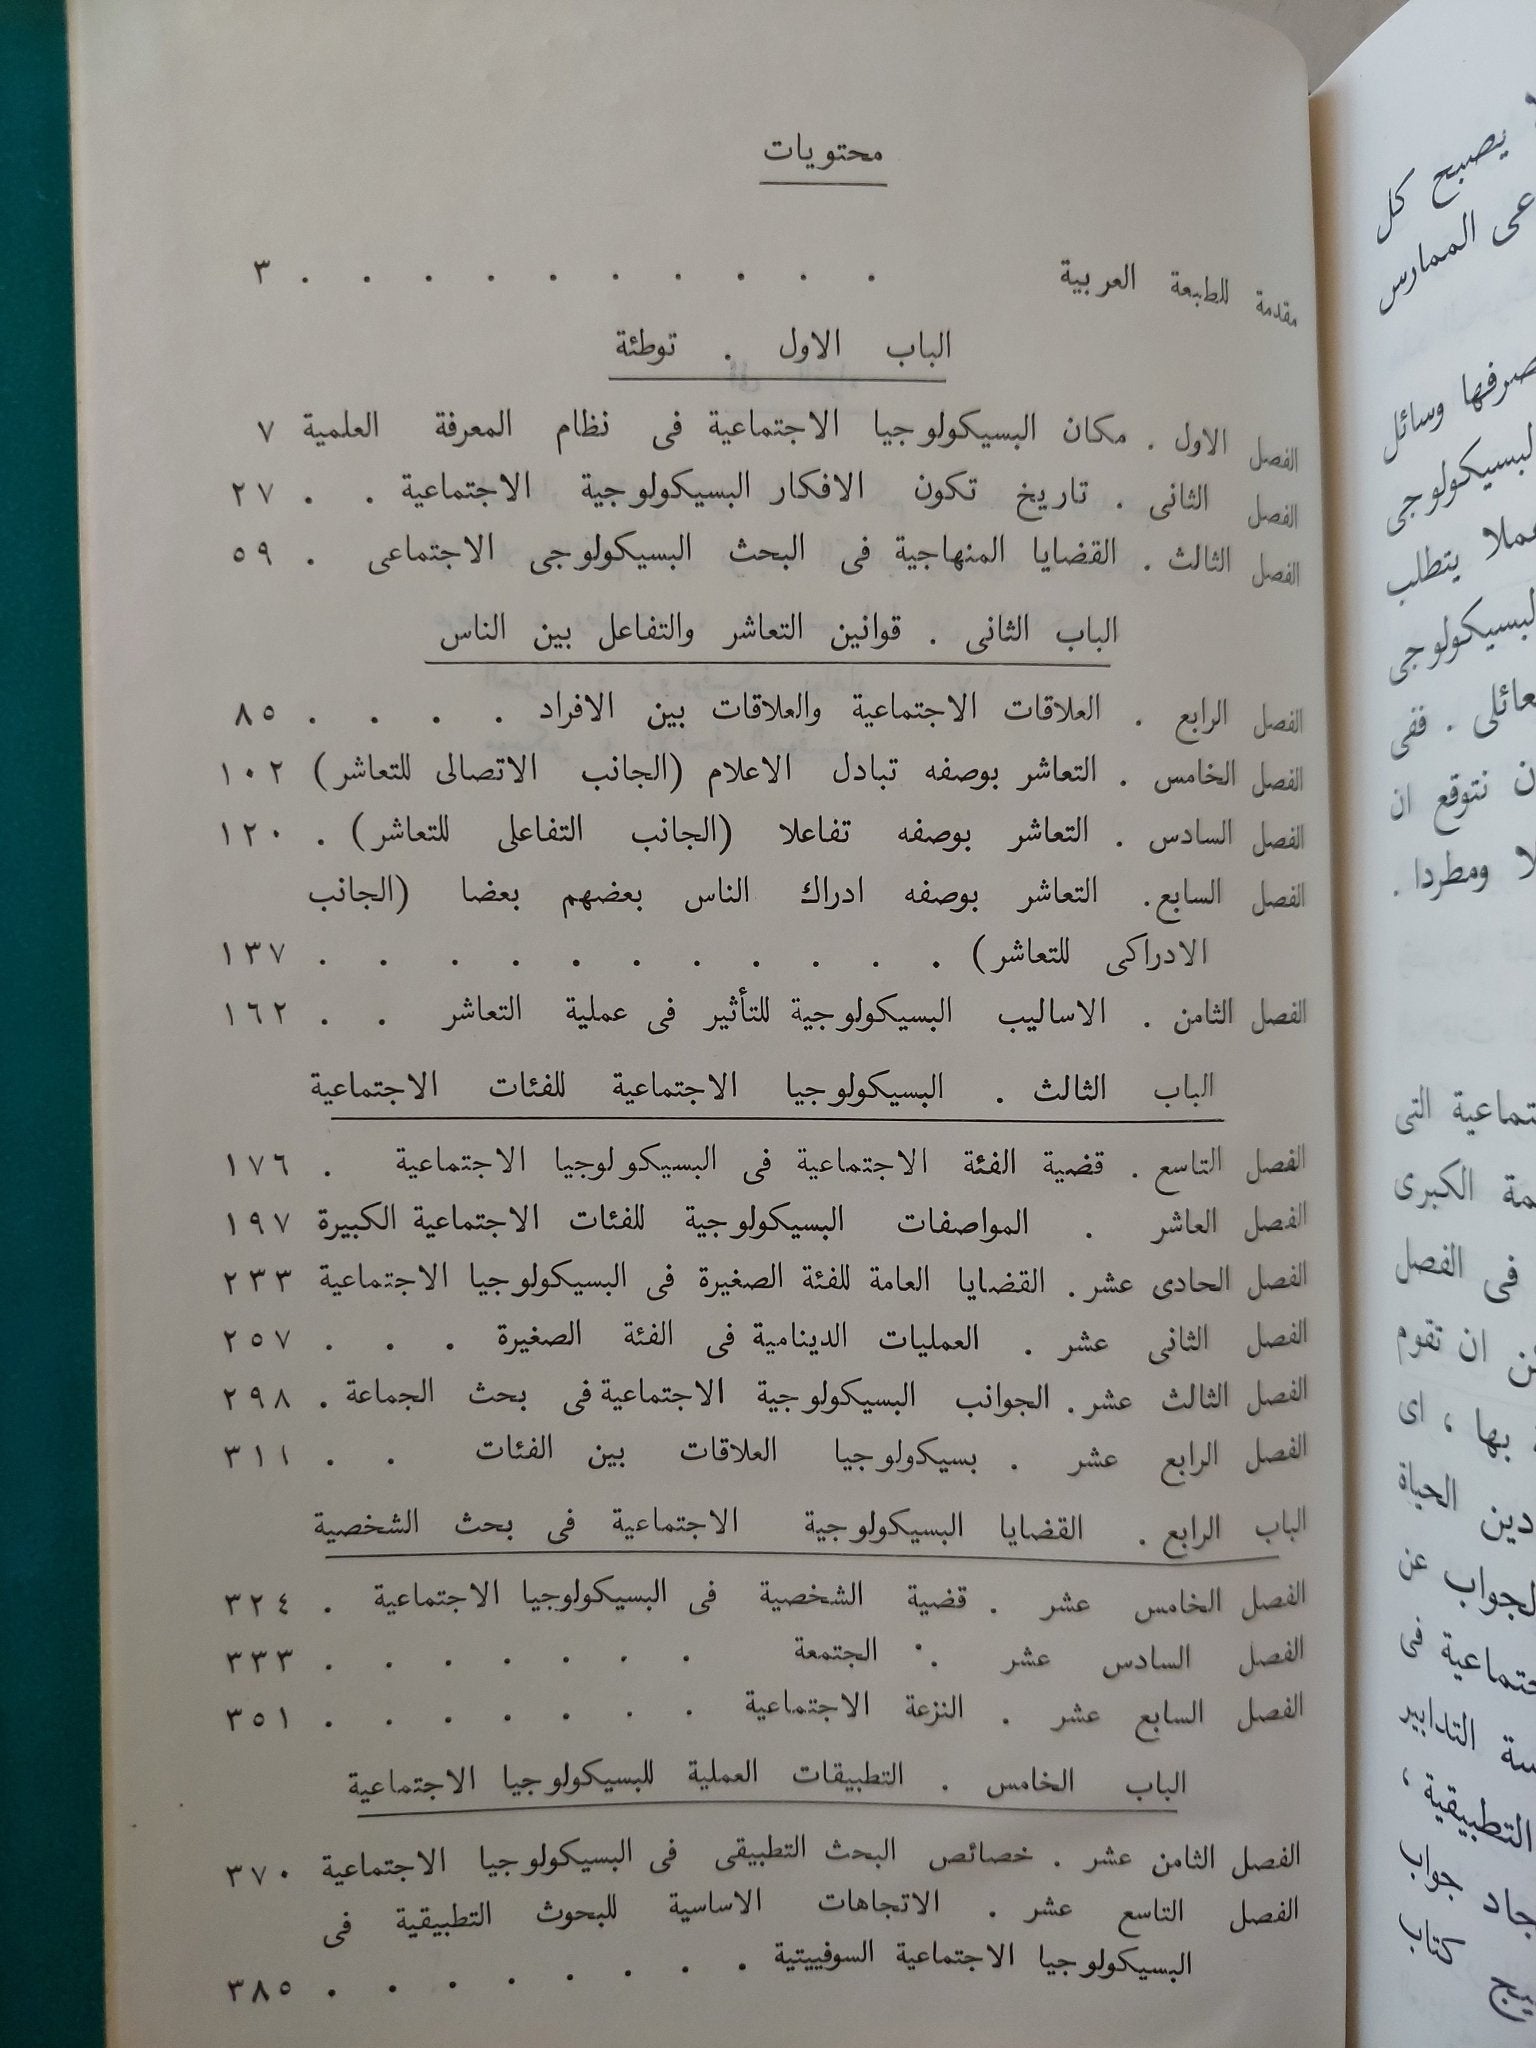 محتويات
مقدمة للطبعة العربية . . . . . . . . . . ٣
الباب الاول . توطئة
الفصل الاول . مكان البسيكولوجيا الاجتماعية فى نظام المعرفة العلمية ٧
الفصل الثانى . تاريخ تكون الافكار البسيكولوجية الاجتماعية . . ٢٧
الفصل الثالث . القضايا المنهاجية فى البحث البسيكولوجى الاجتماعى . ٥٩
الباب الثانى . قوانين التعاشر والتفاعل بين الناس
الفصل الرابع . العلاقات الاجتماعية والعلاقات بين الافراد . . . . ٨٥
الفصل الخامس . التعاشر بوصفه تبادل الاعلام (الجانب الاتصالى للتعاشر) ١٠٢
الفصل السادس . التعاشر بوصفه تفاعلا (الجانب التفاعلى للتعاشر) . ١٢٠
الفصل السابع . التعاشر بوصفه ادراك الناس بعضهم بعضا (الجانب
الادراكى للتعاشر) . . . . . . . . . . . ١٣٧
الفصل الثامن . الاساليب البسيكولوجية للتأثير فى عملية التعاشر . . ١٦٢
الباب الثالث . البسيكولوجيا الاجتماعية للفئات الاجتماعية
الفصل التاسع . قضية الفئة الاجتماعية فى البسيكولوجيا الاجتماعية . ١٧٦
الفصل العاشر . المواصفات البسيكولوجية للفئات الاجتماعية الكبيرة ١٩٧
الفصل الحادى عشر . القضايا العامة للفئة الصغيرة فى البسيكولوجيا الاجتماعية ٢٣٣
الفصل الثانى عشر . العمليات الدينامية فى الفئة الصغيرة . . . ٢٥٧
الفصل الثالث عشر . الجوانب البسيكولوجية الاجتماعية فى بحث الجماعة . ٢٩٨
الفصل الرابع عشر . بسيكولوجيا العلاقات بين الفئات . . ٣١١
الباب الرابع . القضايا البسيكولوجية الاجتماعية فى بحث الشخصية
الفصل الخامس عشر . قضية الشخصية فى البسيكولوجيا الاجتماعية . ٣٢٤
الفصل السادس عشر . الجتمعة . . . . . . . ٣٣٣
الفصل السابع عشر . النزعة الاجتماعية . . . . . . . ٣٥١
الباب الخامس . التطبيقات العملية للبسيكولوجيا الاجتماعية
الفصل الثامن عشر . خصائص البحث التطبيقى فى البسيكولوجيا الاجتماعية ٣٧٠
الفصل التاسع عشر . الاتجاهات الاساسية للبحوث التطبيقية فى
البسيكولوجيا الاجتماعية السوفييتية . . . . . . . . ٣٨٥
يصبح كل
الممارس
وسائل
يتطلب
. ففى
نتوقع ان
ومطردا .
التى
الكبرى
فى الفصل
ان تقوم
بها ، اى
الحياة
عن
فى
التدابير
التطبيقية ،
جواب
كتاب